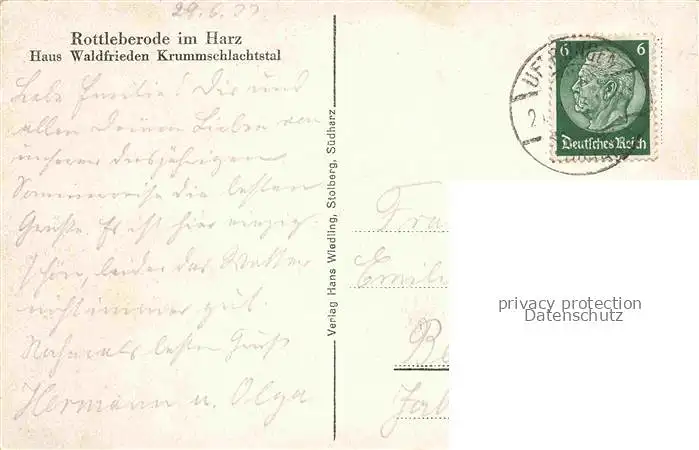 29.6.33
Rottleberode im Harz
Haus Waldfrieden Krummschlachtstal
Liebe Emilie! Dir und
allen Deinen Lieben von
unserer diesjährigen
Sommerreise die besten
Grüße. Es ist hier einzig
schön, leider das Wetter
nicht immer gut.
Nochmals besten Gruß
Hermann u. Olga
Verlag Hans Wiedling, Stolberg, Südharz.
6 6
Deutsches Reich
UFTRUNGEN
Fra
Emili
Be
privacy protection
Datenschutz